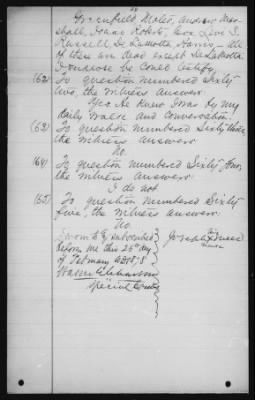 Greenfield, Moles, Andrew Mar-
shall, Isaac Roberts, Levi S.
Russell, De Lamotta Harris – All
of them are dead except De Lamotta
I suppose he could testify
(62) To question numbered Sixty
two, the witness answers.
Yes he knew I was by my
daily walk and conversation.
(63) To question numbered Sixty three,
the witness answers.
No.
(64) To question numbered Sixty four,
the witness answers.
I do not.
(65) To question numbered Sixty
five, the witness answers.
No.
Sworn to & subscribed
before me this 25th day
of February AD 1878
Special Comr
Joseph his
mark